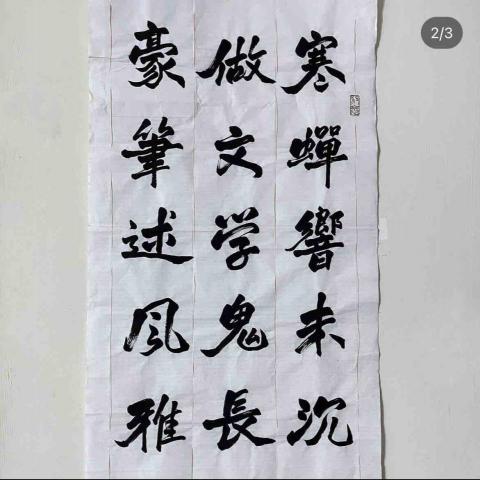 寒蟬響未沉
做文学鬼長
豪筆述风雅
2/3